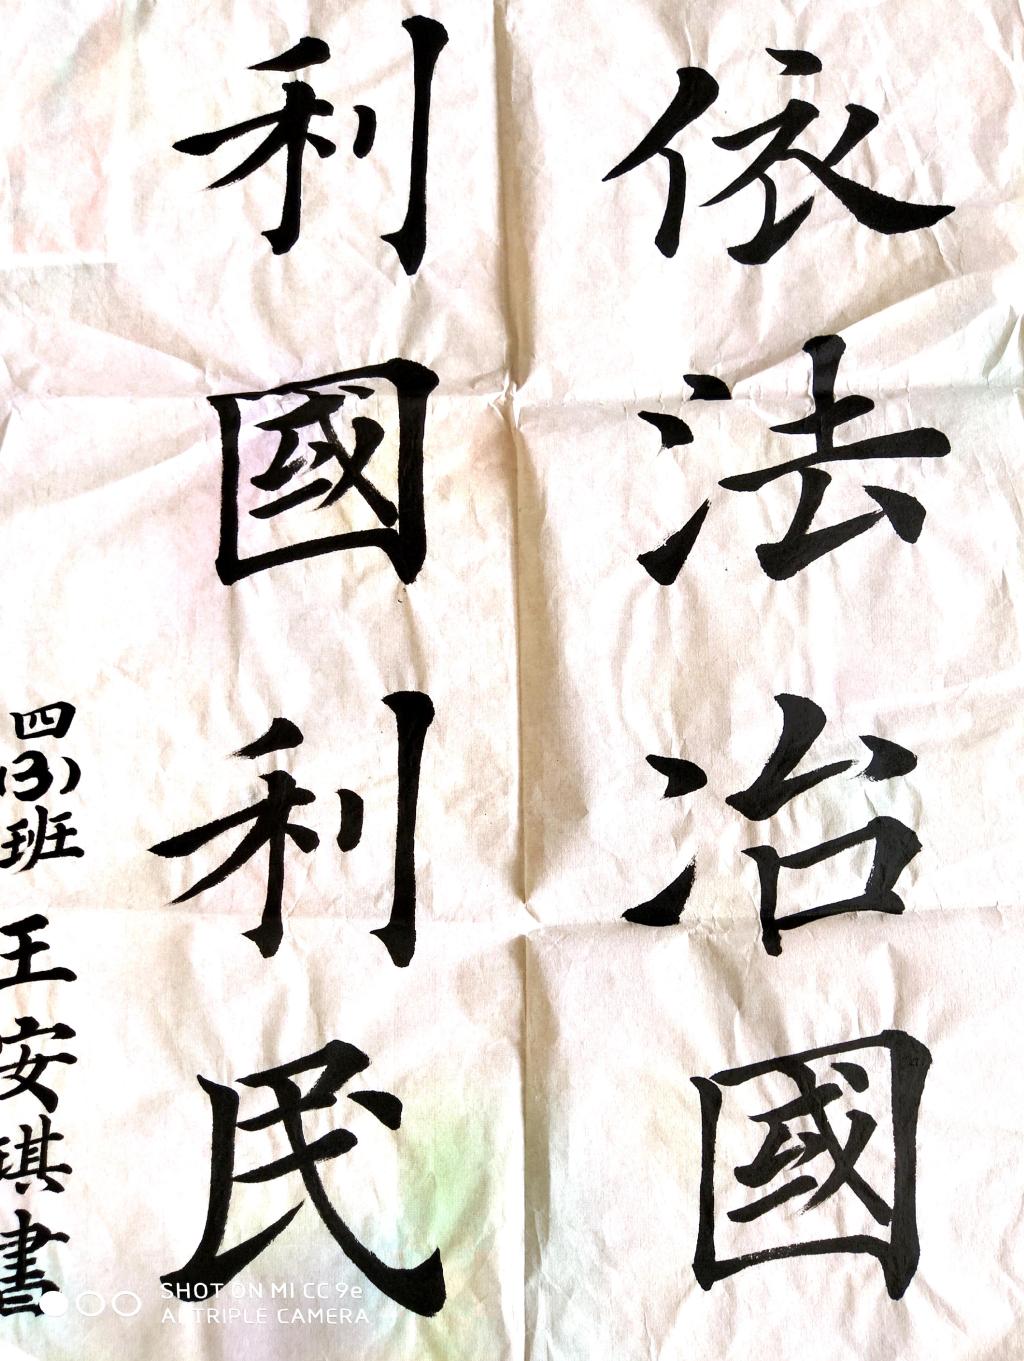 依法治國
利國利民
四(3)班 王安琪書
SHOT ON MI CC 9e
AI TRIPLE CAMERA